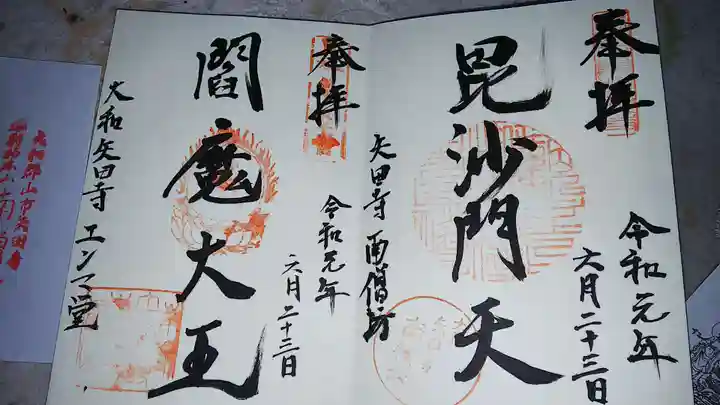 奉拝
令和元年
六月二十三日
毘沙門天
矢田寺 南僧坊
奉拝
令和元年
六月二十三日
閻魔大王
大和矢田寺 エンマ堂